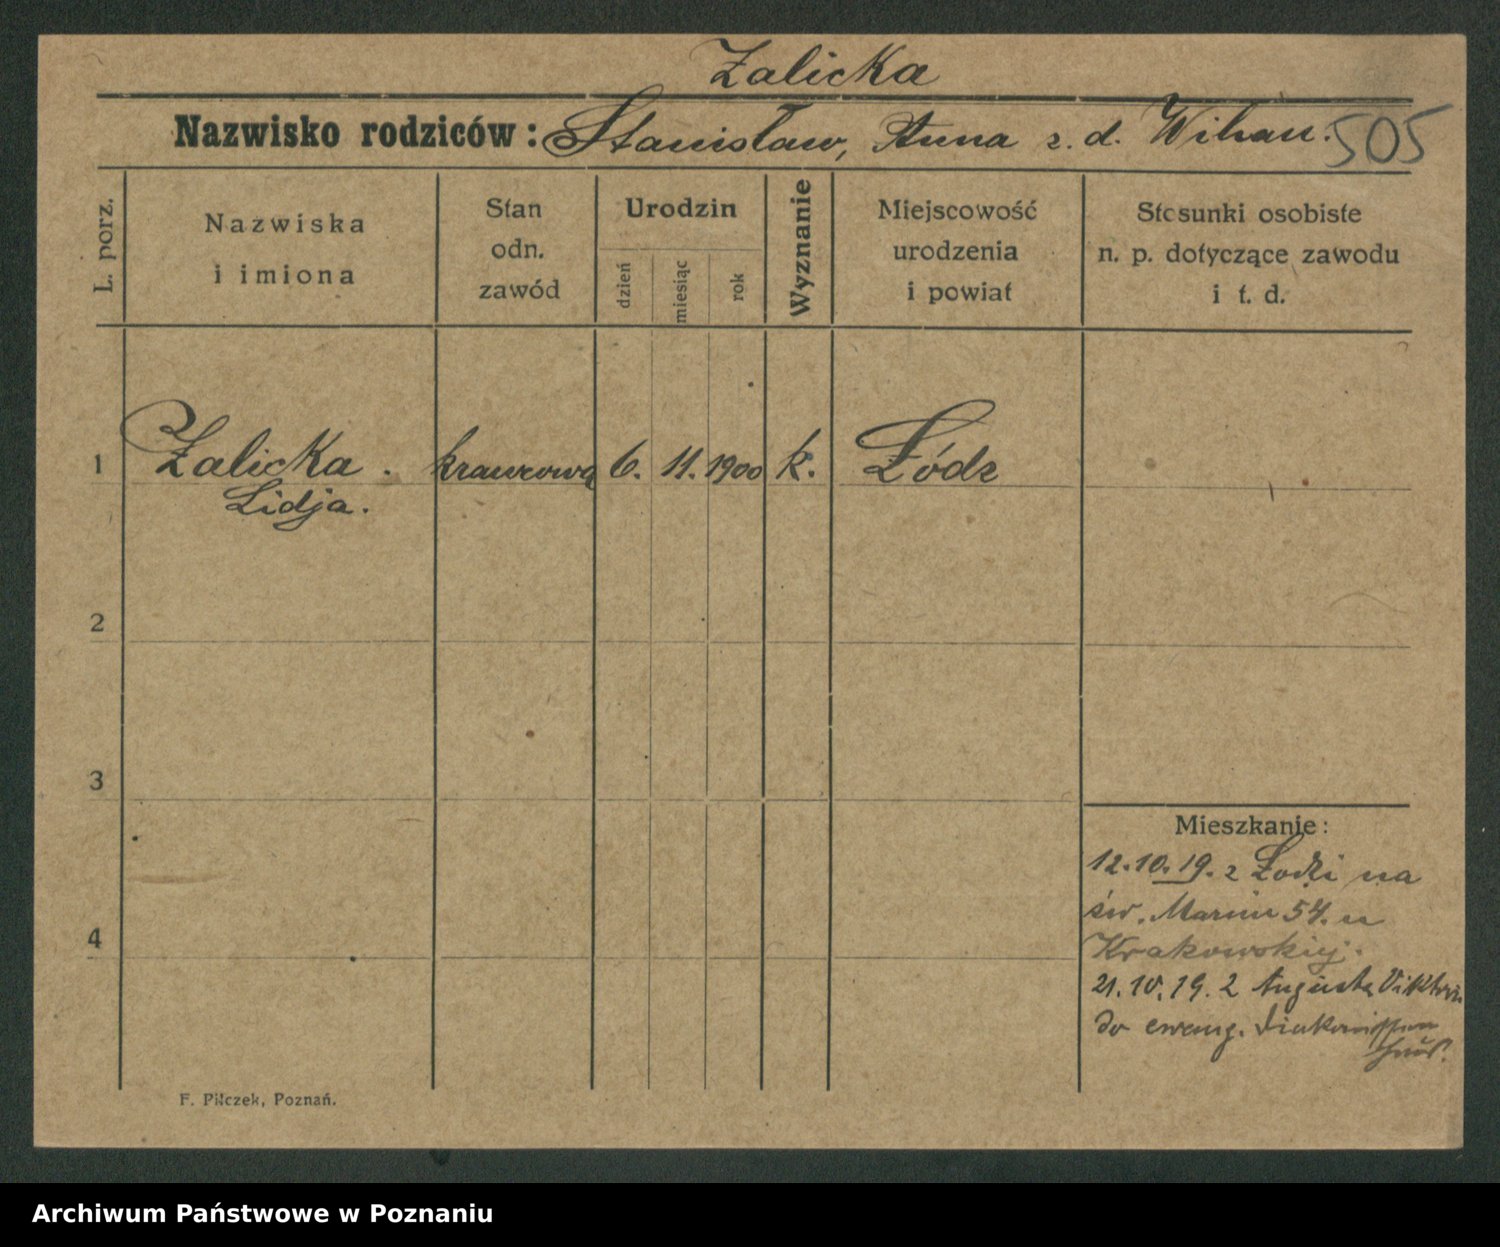 Zalicka
Nazwisko rodziców: Stanisław, Anna z. d. Wihan. 505
L. porz.
Nazwiska i imiona
Stan odn. zawód
Urodzin
dzień
miesiąc
rok
Wyznanie
Miejscowość urodzenia i powiat
Stosunki osobiste n. p. dotyczące zawodu i t. d.
1 Zalicka. krawcowa 6. 11. 1900 k. Łódz
Lidja.
2
3
4
Mieszkanie:
12.10.19. z Łodzi na
św. Marcin 54. u
Krakowskiej.
21.10.19. z Augusta Viktoria
do ewang.
F. Pilczek, Poznań.
Archiwum Państwowe w Poznaniu